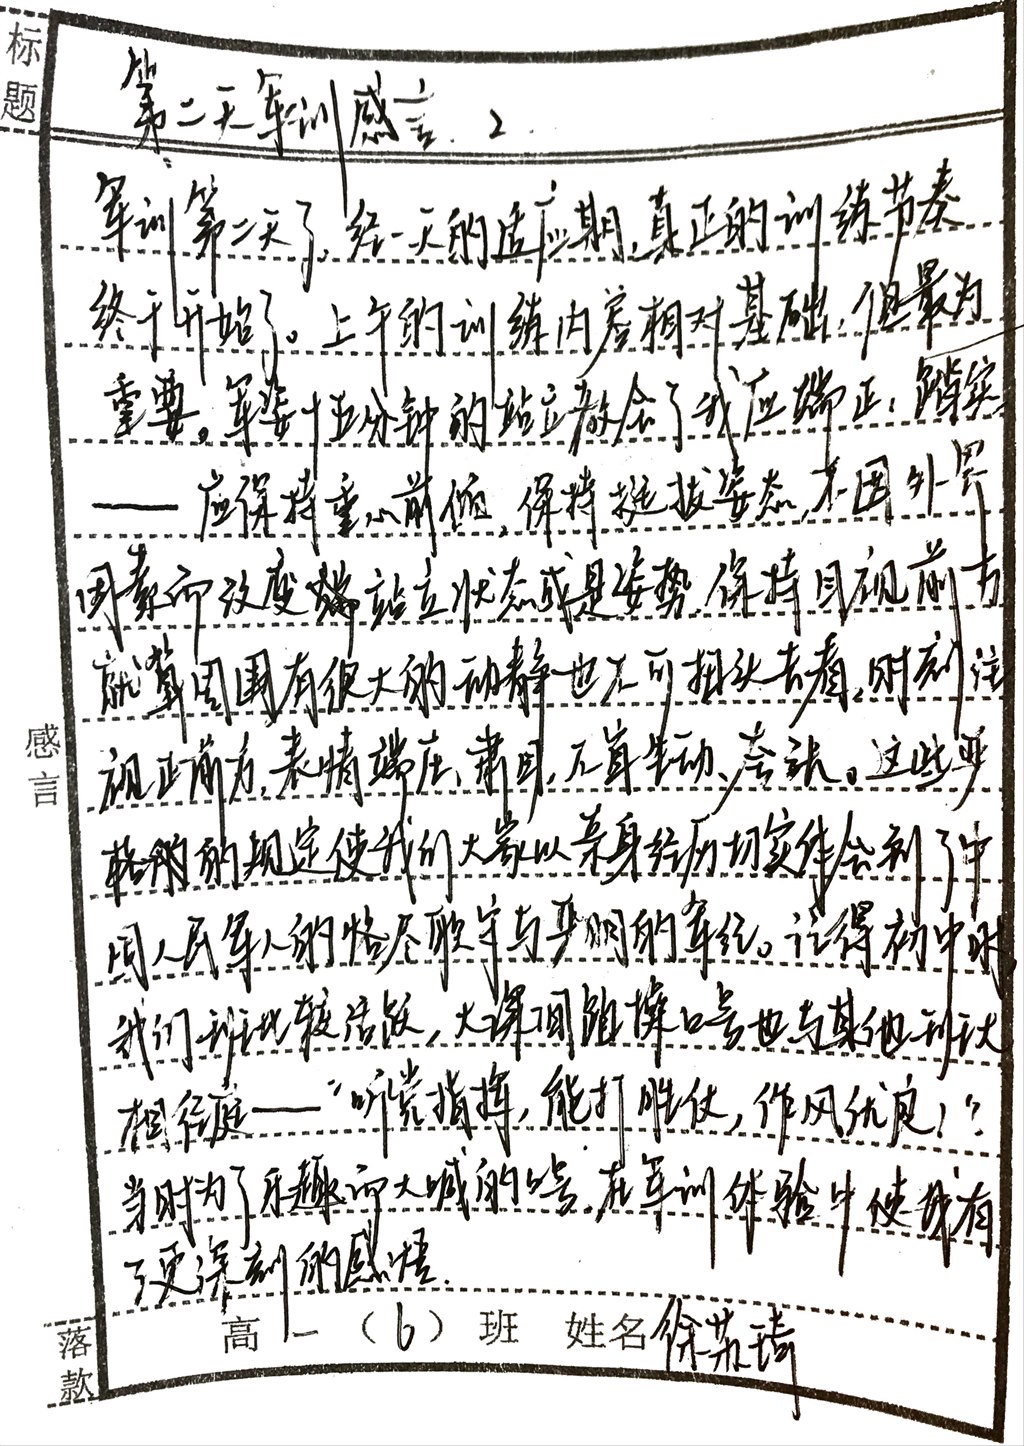 标题
第二天军训感言.2.
军训第二天了,经一天的适应期,真正的训练节奏
终于开始了。上午的训练内容相对基础,但最为
重要。军姿十五分钟的站立教会了我应端正,踏实
——应保持重心前倾,保持挺拔姿态,不因外界
因素而改变站立状态或是姿势.保持目视前方
就算周围有很大的动静也不可扭头去看,时刻注
视正前方,表情端庄、肃目,不宜生动、夸张。这些严
格的规定使我们大家以亲身经历切实体会到了中
国人民军人的恪尽职守与严明的军纪。记得初中时
我们班比较活跃,大课间跑操口号也与其他班大
相径庭——“听党指挥,能打胜仗,作风优良!”
当时为了乐趣而大喊的口号,在军训体验中使我有
了更深刻的感悟.
感言
落款
高一(6)班 姓名徐苏琦